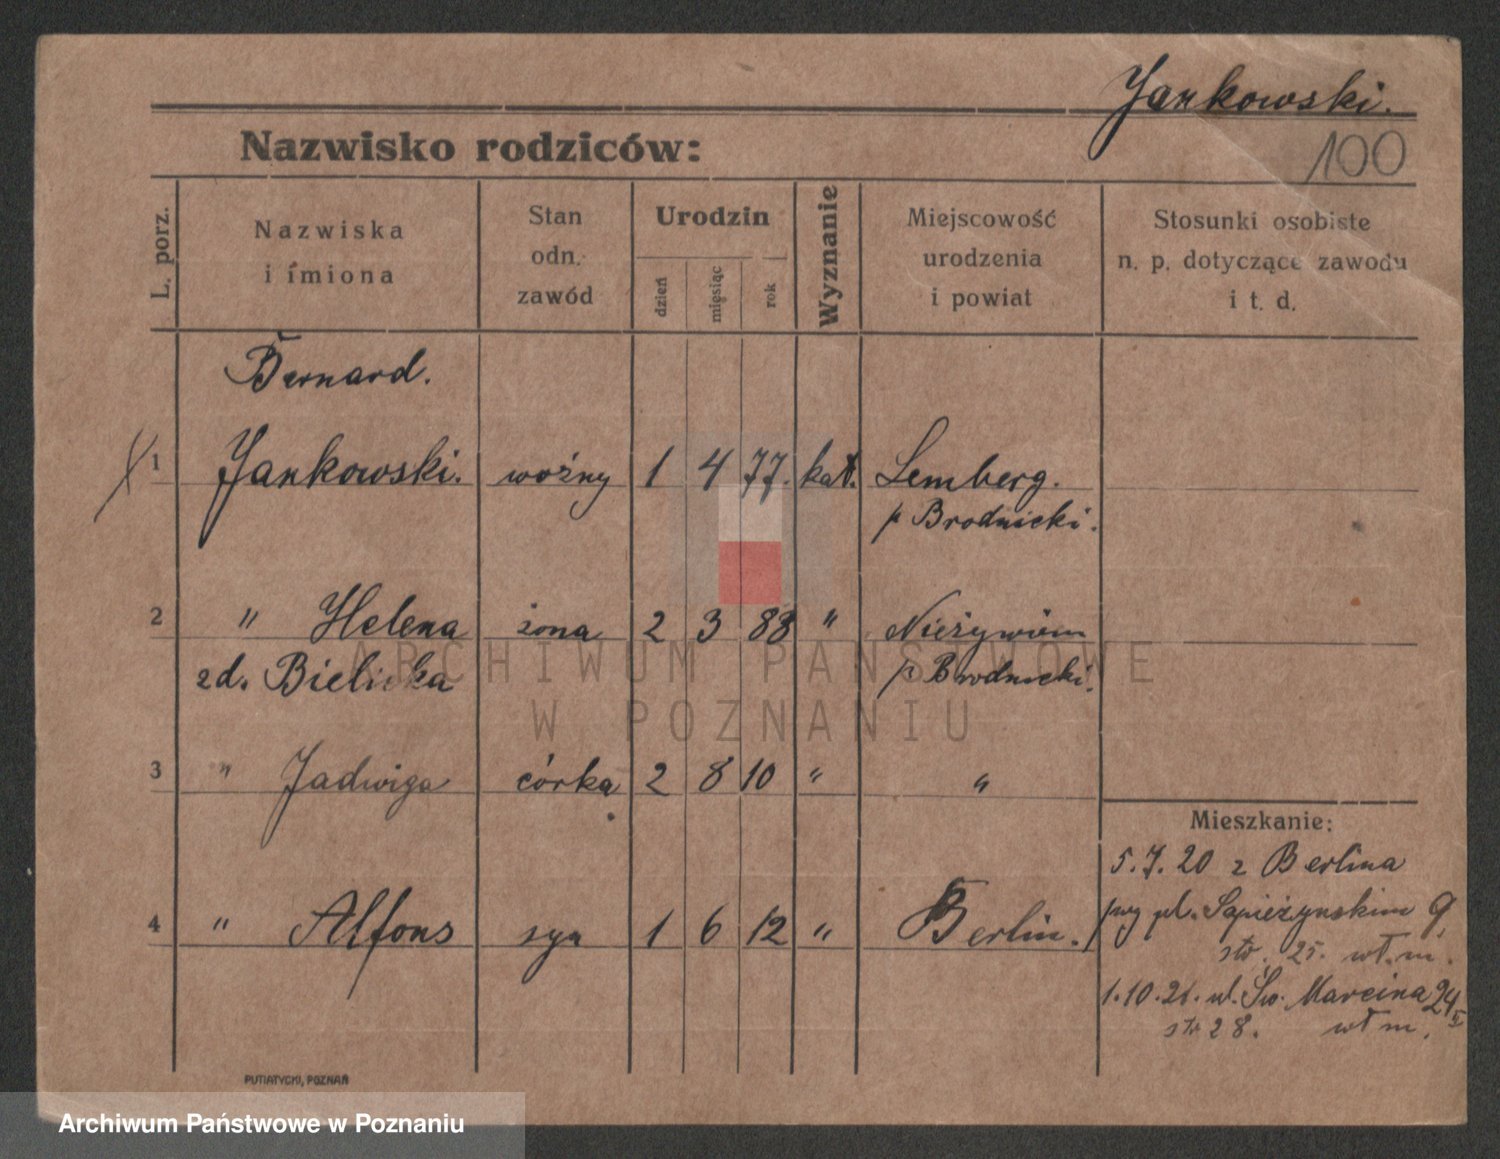 Jankowski.
Nazwisko rodziców:
100
L. porz.
Nazwiska
i imiona
Stan
odn.
zawód
Urodzin
dzień
miesiąc
rok
Wyznanie
Miejscowość
urodzenia
i powiat
Stosunki osobiste
n. p. dotyczące zawodu
i t. d.
Bernard.
1 Jankowski. woźny 1 4 77. kat. Lemberg.
p Brodnicki.
2 " Helena żona 2 3 88 " Nieżywiem
zd. Bielicka p Brodnicki.
3 " Jadwiga córka 2 8 10 " "
Mieszkanie:
5.7.20 z Berlina
4 " Alfons syn 1 6 12 " Berlin. przy pl. Sapieżynskim 9,
str. 25. wł. m.
1.10.21. ul. Św. Marcina 24
str 28. wł m.
PUTIATYCKI, POZNAŃ
ARCHIWUM PAŃSTWOWE
W POZNANIU
Archiwum Państwowe w Poznaniu